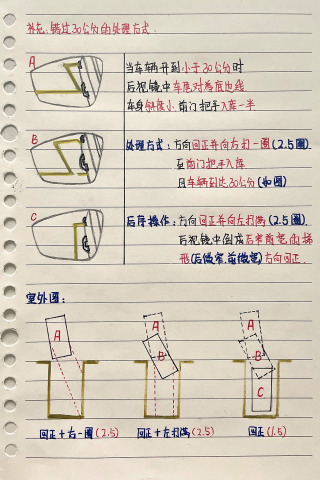 补充:错过30公分的处理方式:
A
当车辆开到小于30公分时
后视镜中车尾对着底边线
车身斜度小,前门把手入库一半
B
处理方式:方向回正并向右打一圈(2.5圈)
至前门把手入库
且车辆到达30公分(如图)
C
后序操作:方向回正并向左打满(2.5圈)
后视镜中倒成后窄前宽的梯
形(后微窄,前微宽)方向回正.
室外图:
A
A
B
A
B
C
回正+右一圈(2.5)
回正+左打满(2.5)
回正(1.5)